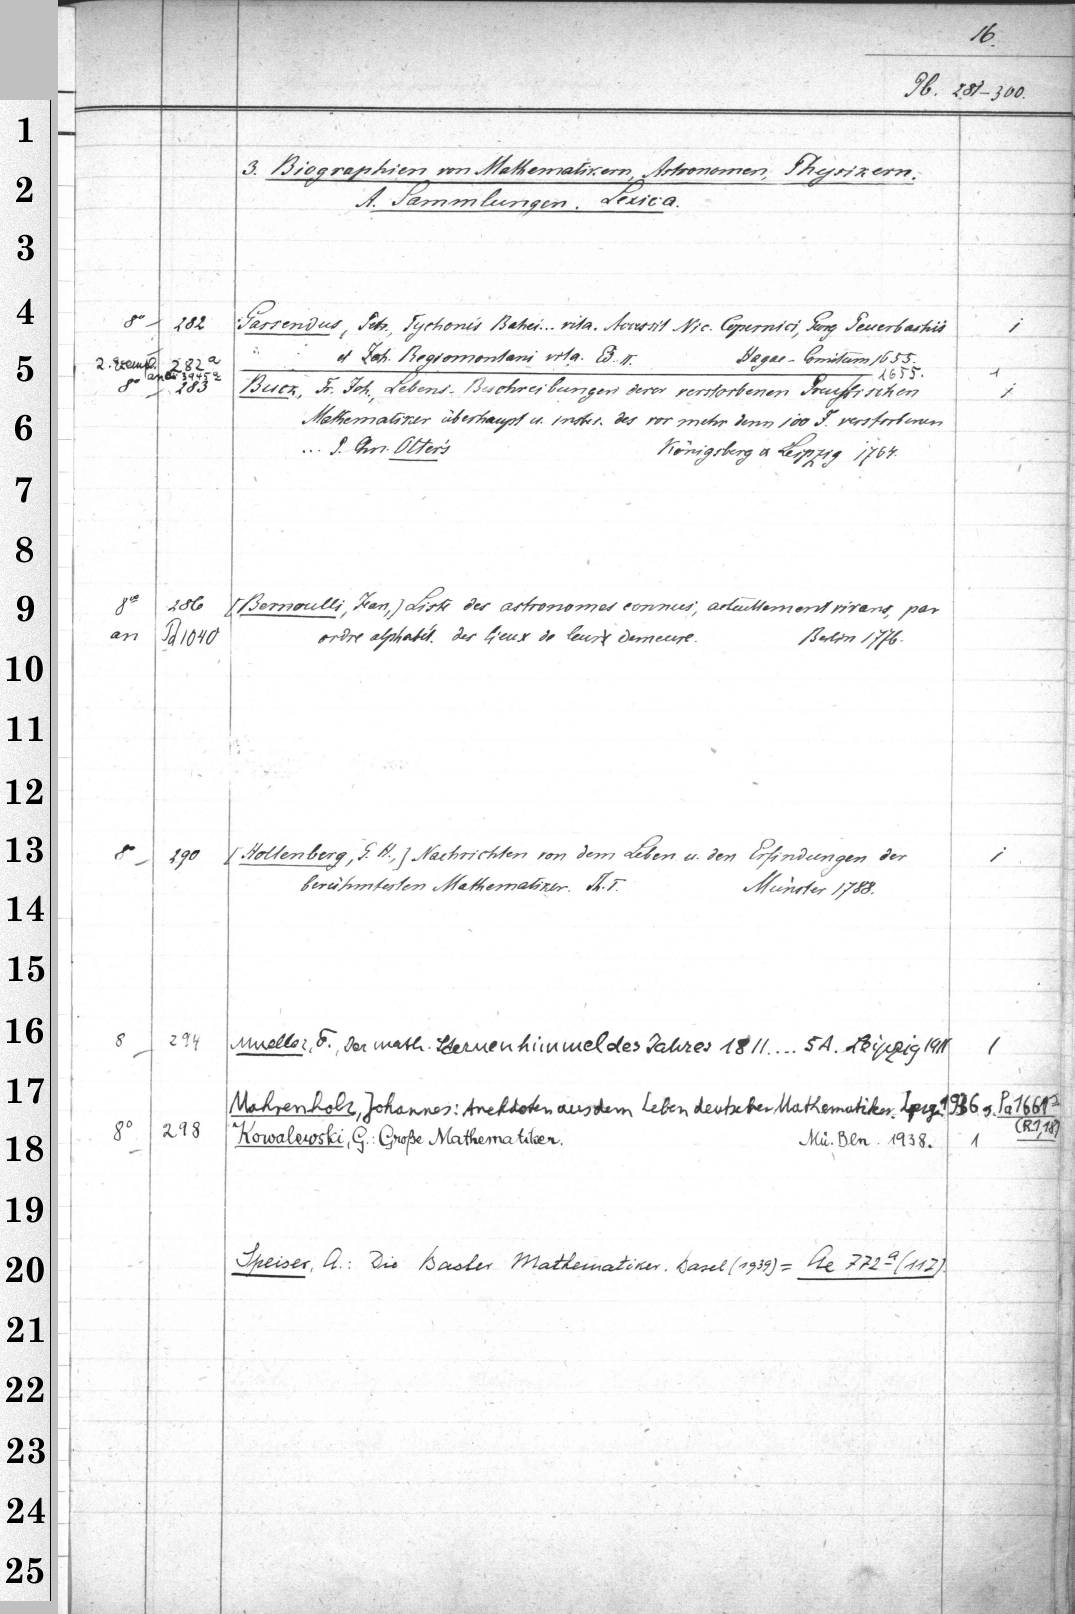 16.
Pb. 281-300.
3. Biographien von Mathematikern, Astronomen, Physikern.
A. Sammlungen. Lexica.
8° 282 Gassendus, Petr., Tychonis Bahei... vita. Accessit Nic. Copernici, Georg Peuerbachii 1
et Joh. Regiomontani vita. Ed. II. Hagae-Comitum 1655.
2. Exempl. 282a an 3945a 1655. 1
8° 283 Buck, Fr. Joh., Lebens-Beschreibungen derer verstorbenen Preußischen 1
Mathematiker überhaupt u. insbes. des vor mehr denn 100 J. verstorbenen
... P. Chr. Otter's Königsberg u. Leipzig 1764.
8° 286 [Bernoulli, Jean,] Liste des astronomes connus, actuellement vivans, par
an Pd 1040 ordre alphabét. des lieux de leur demeure. Berlin 1776.
8° 290 [Hollenberg, G. H.,] Nachrichten von dem Leben u. den Erfindungen der 1
berühmtesten Mathematiker. Th. I. Münster 1788.
8 294 Mueller, F., Der math. Sternenhimmel des Jahres 1811.... SA. Leipzig 1911 1
Mahrenholz, Johannes: Anekdoten aus dem Leben deutscher Mathematiker. Lpzg. 1936 s. Pa 1661a
(R.1,18)
8° 298 Kowalewski, G.: Große Mathematiker. Mü. Bln. 1938. 1
Speiser, A.: Die Basler Mathematiker. Basel (1939) = Ae 772a (117).
1
2
3
4
5
6
7
8
9
10
11
12
13
14
15
16
17
18
19
20
21
22
23
24
25